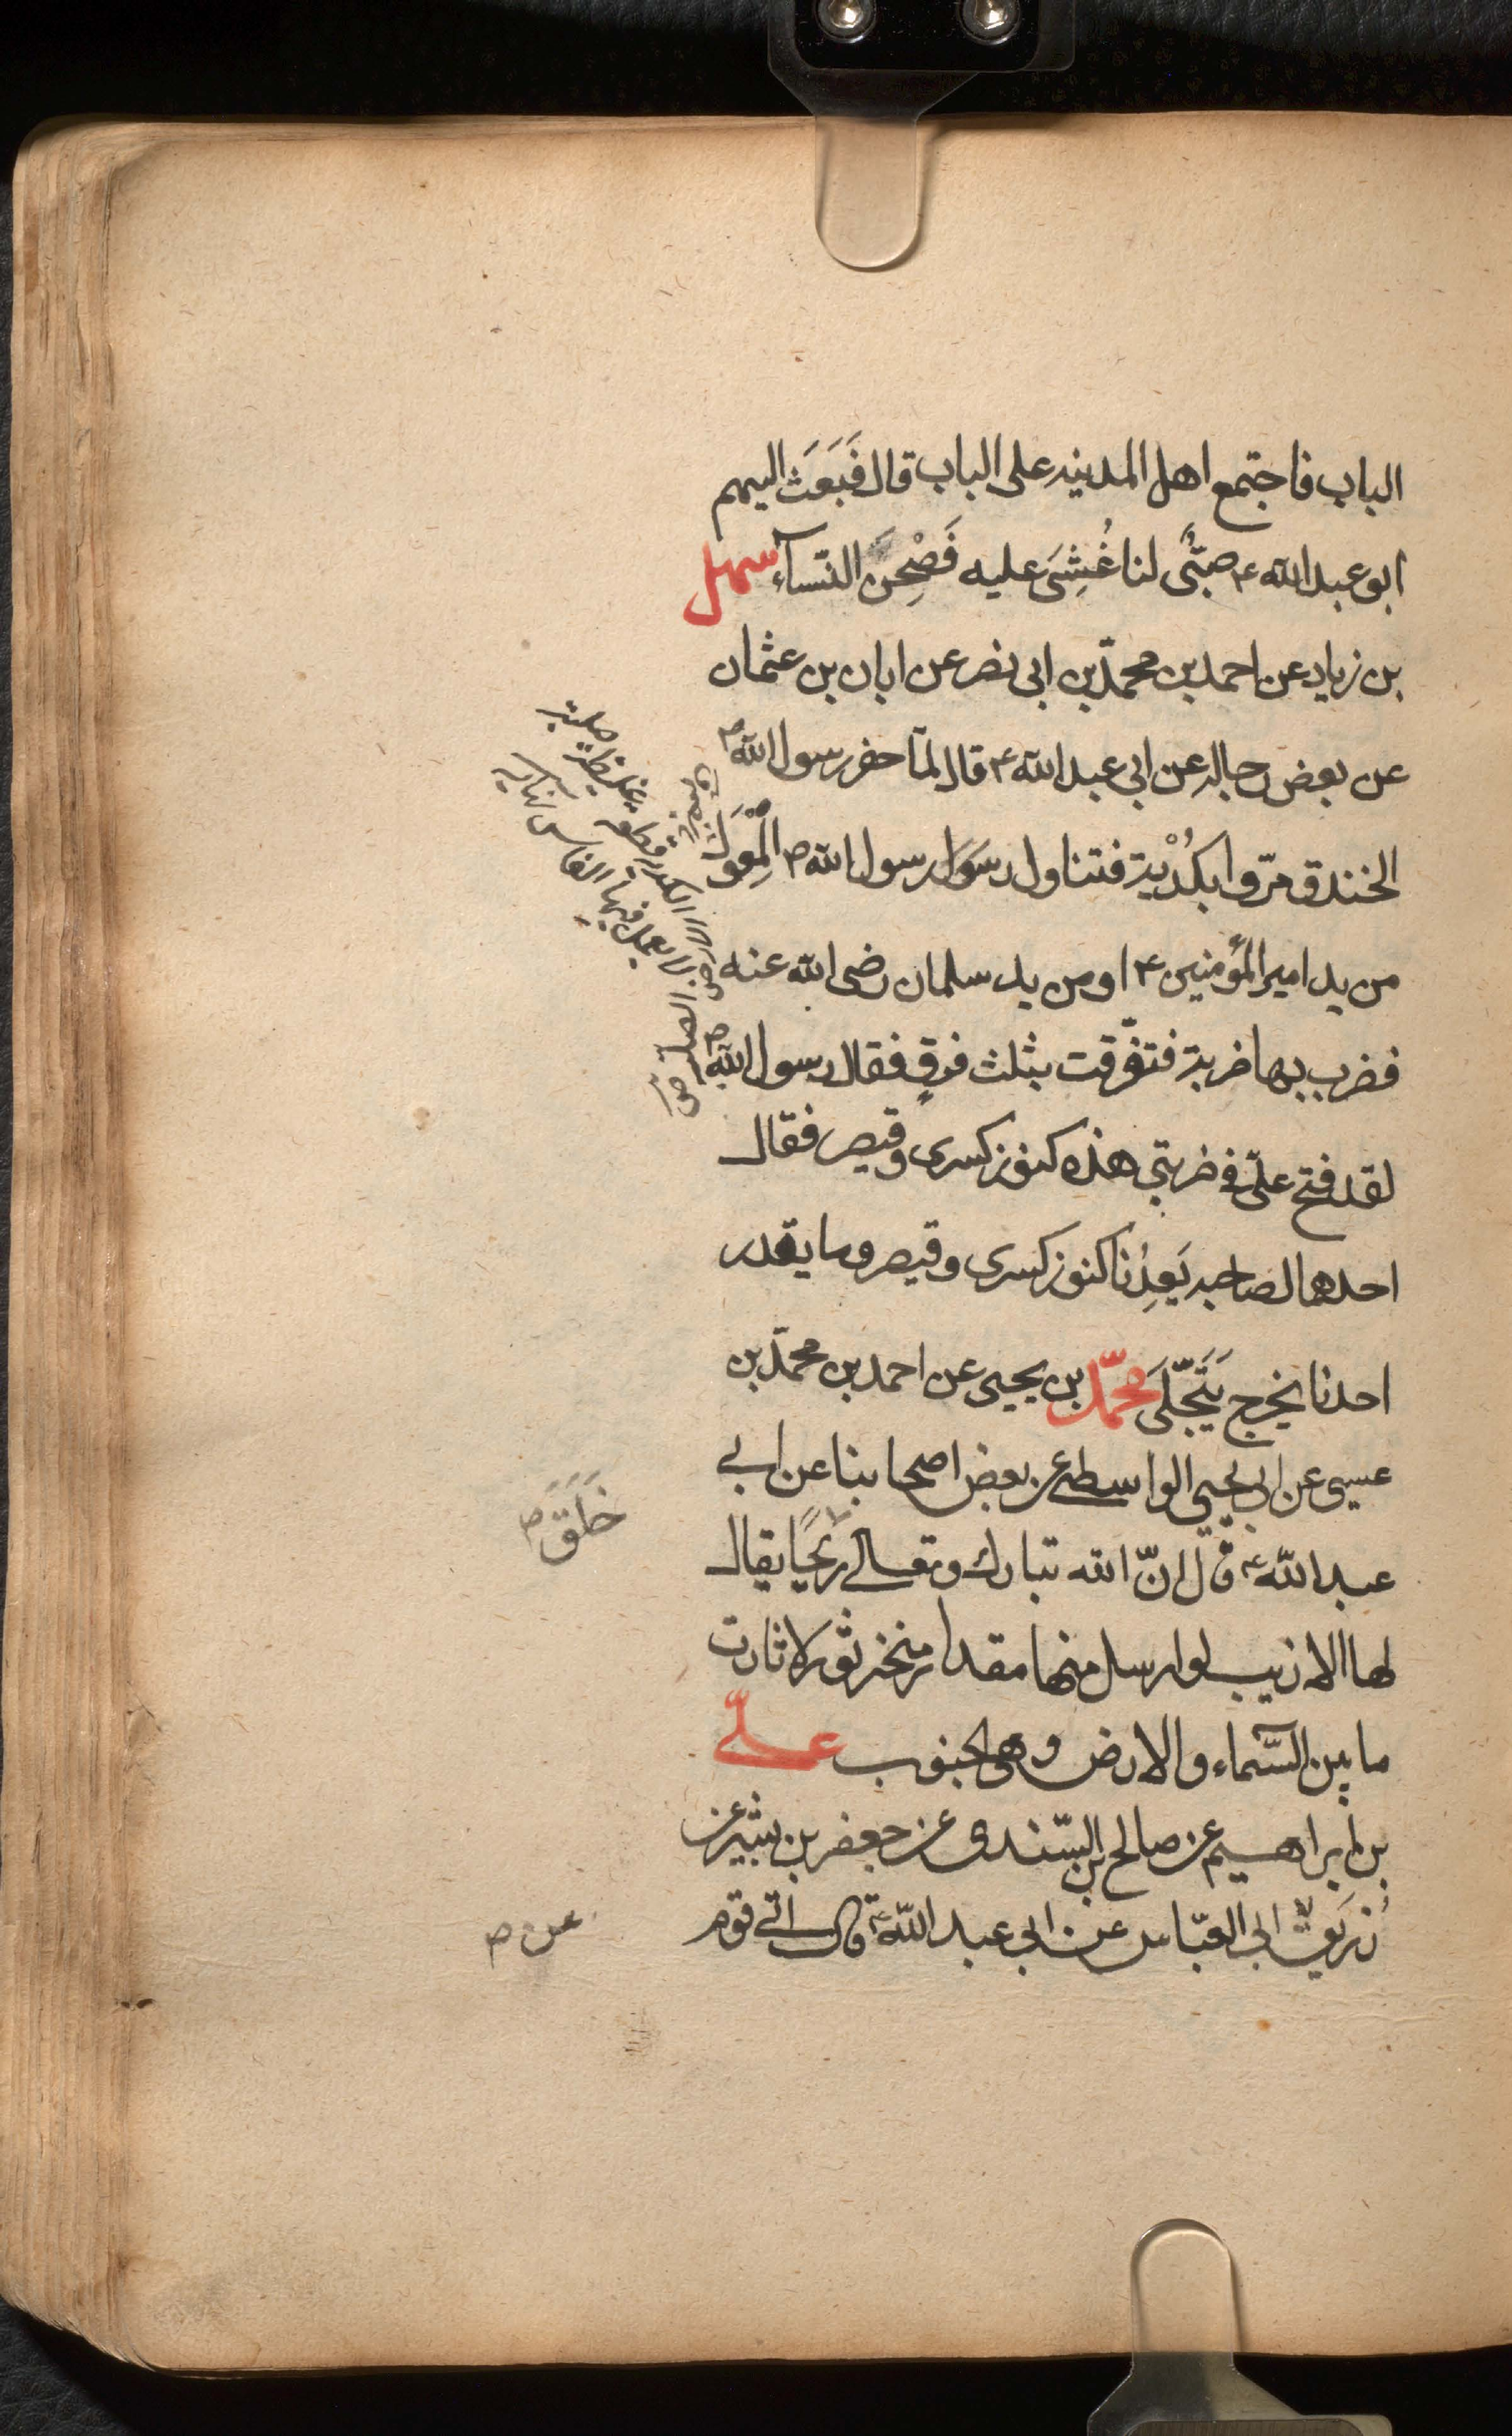 الباب فاجتمع اهل المدينه على الباب قال فَبَعَثَ اليهم
ابو عبدالله ع صبىٌّ لنا غُشِىَ عليه فَصِحْنَ النّسآء سهل
بن زياد عن احمد بن محمّد بن ابى نصر عن ابان بن عثمان
عن بعض رجاله عن ابى عبدالله ع قال لمّا حفر رسول الله ص
الخندق مرّوا بكُدْيَة فتناول رسول رسول الله ص الْمِعوَل
من يد امير المؤمنين ع او من يد سلمان رضى الله عنه
فضرب بها ضربة فتفّرقت بثلث فرقٍ فقال رسول الله ص
لقد فتح علىّ فى ضربتى هذه كنوز كسرى وقيصر فقال
احدهما لصاحبه يَعِدُنا كنوز كسرى وقيصر وما يقدر
احدنا يخرج يَتَخّلَى محمّد بن يحيى عن احمد بن محمّد بن
عيسى عن ابى يحيى الواسطى عن بعض اصحابنا عن ابى
عبدالله ع قال انّ الله تبارك وتعالى ريحًا يقال
لها الازيب لو ارسل منها مقدار منخر ثور لاثارت
ما بين السّماء والارض وهى الجنوب علىّ
بن ابراهيم عن صالح بن السّندى عن جعفر بن بشير عن
زُرَيق ابى العبّاس عن ابى عبدالله ع قال اتى قوم
قطعة غليظة صلبة
لا يعمل فيها الفاس
خَلَقَ ص
عن ص